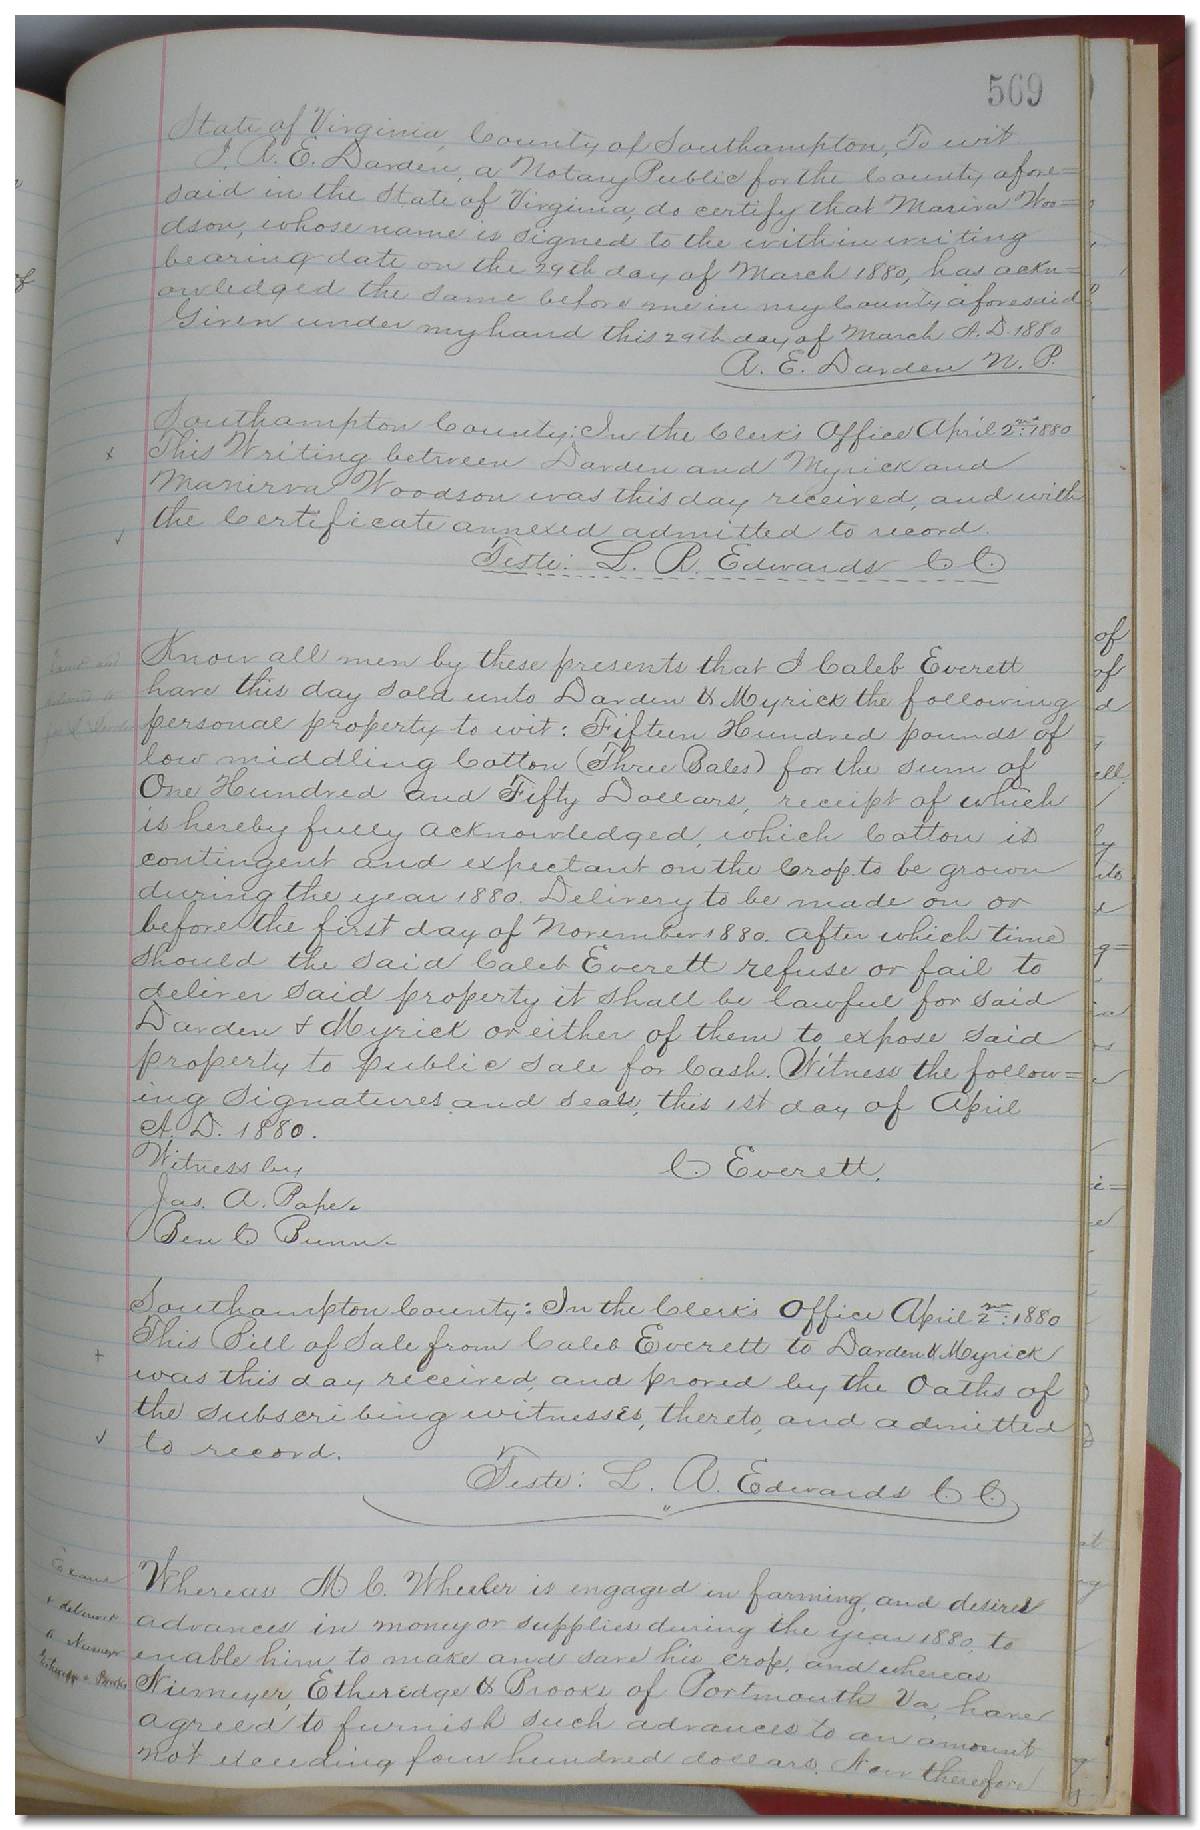 569
State of Virginia, County of Southampton, To wit
I, A. E. Darden, a Notary Public for the County afore=
said in the State of Virginia, do certify that Mariva Woo=
dson, whose name is signed to the within writing
bearing date on the 29th day of March 1880, has ackn=
owledged the same before me in my County aforesaid
Given under my hand this 29th day of March A.D. 1880
A. E. Darden N. P.
Southampton County: In the Clerk's Office April 2nd 1880
This Writing between Darden and Myrick and
Manirva Woodson was this day received, and with
the Certificate annexed admitted to record.
Teste: L. R. Edwards C C
Know all men by these presents that I Caleb Everett
have this day sold unto Darden & Myrick the following
personal property to wit: Fifteen Hundred pounds of
low middling Cotton (Three Bales) for the sum of
One Hundred and Fifty Dollars, receipt of which
is hereby fully acknowledged, which Cotton is
contingent and expectant on the Crop to be grown
during the year 1880. Delivery to be made on or
before the first day of November 1880. After which time
should the said Caleb Everett refuse or fail to
deliver said property it shall be lawful for said
Darden & Myrick or either of them to expose said
property to public sale for Cash. Witness the follow=
ing signatures and seals, this 1st day of April
A. D. 1880.
Witness by
C Everett.
Jas. A. Pope.
Ben C Bunn.
Southampton County: In the Clerk's Office April 2nd 1880
This Bill of Sale from Caleb Everett to Darden & Myrick
was this day received, and proved by the Oaths of
the subscribing witnesses, thereto, and admitted
to record.
Teste: L. R. Edwards C C.
Whereas M C. Wheeler is engaged in farming, and desires
advances in money or supplies during the year 1880, to
enable him to make and save his crop, and whereas
Niemeyer, Etheredge & Brooks of Portmouth Va, have
agreed to furnish such advances to an amount
not exceeding four hundred dollars. Now therefore